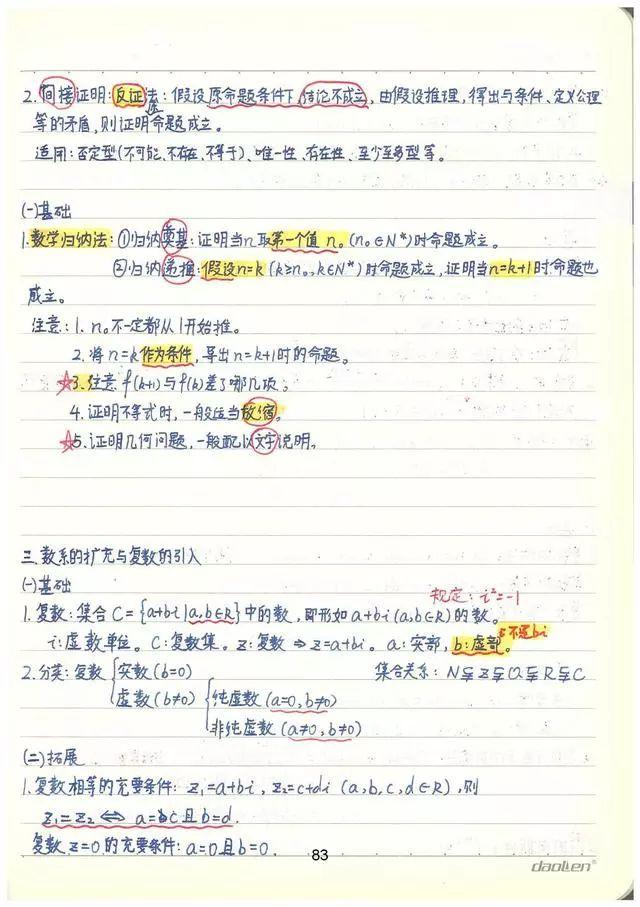 2.间接证明:反证法:假设原命题条件下,结论不成立,由假设推理,得出与条件、定义公理
等的矛盾,则证明命题成立。
适用:否定型(不可能、不存在、不等于)、唯一性、存在性、至少至多型等。
(一)基础
1.数学归纳法:①归纳奠基:证明当n取第一个值n₀(n₀∈N*)时命题成立。
②归纳递推:假设n=k(k≥n₀,k∈N*)时命题成立,证明当n=k+1时命题也
成立。
注意:1、n₀不一定都从1开始推。
2.将n=k作为条件,导出n=k+1时的命题。
☆3.注意f(k+1)与f(k)差了哪几项;
4.证明不等式时,一般适当放缩。
☆5.证明几何问题,一般配以文字说明。
三.数系的扩充与复数的引入
(一)基础
规定:i²=-1
1.复数:集合C={a+bi|a,b∈R}中的数,即形如a+bi(a,b∈R)的数。
i:虚数单位。C:复数集。z:复数⇒z=a+bi。a:实部,b:虚部。不是bi
2.分类:复数{实数(b=0) 集合关系:N⫋Z⫋Q⫋R⫋C
虚数(b≠0){纯虚数(a=0,b≠0)
非纯虚数(a≠0,b≠0)
(二)拓展
1.复数相等的充要条件:z₁=a+bi,z₂=c+di(a,b,c,d∈R),则
z₁=z₂⇔a=c且b=d.
复数z=0的充要条件:a=0且b=0.
83
daolien®